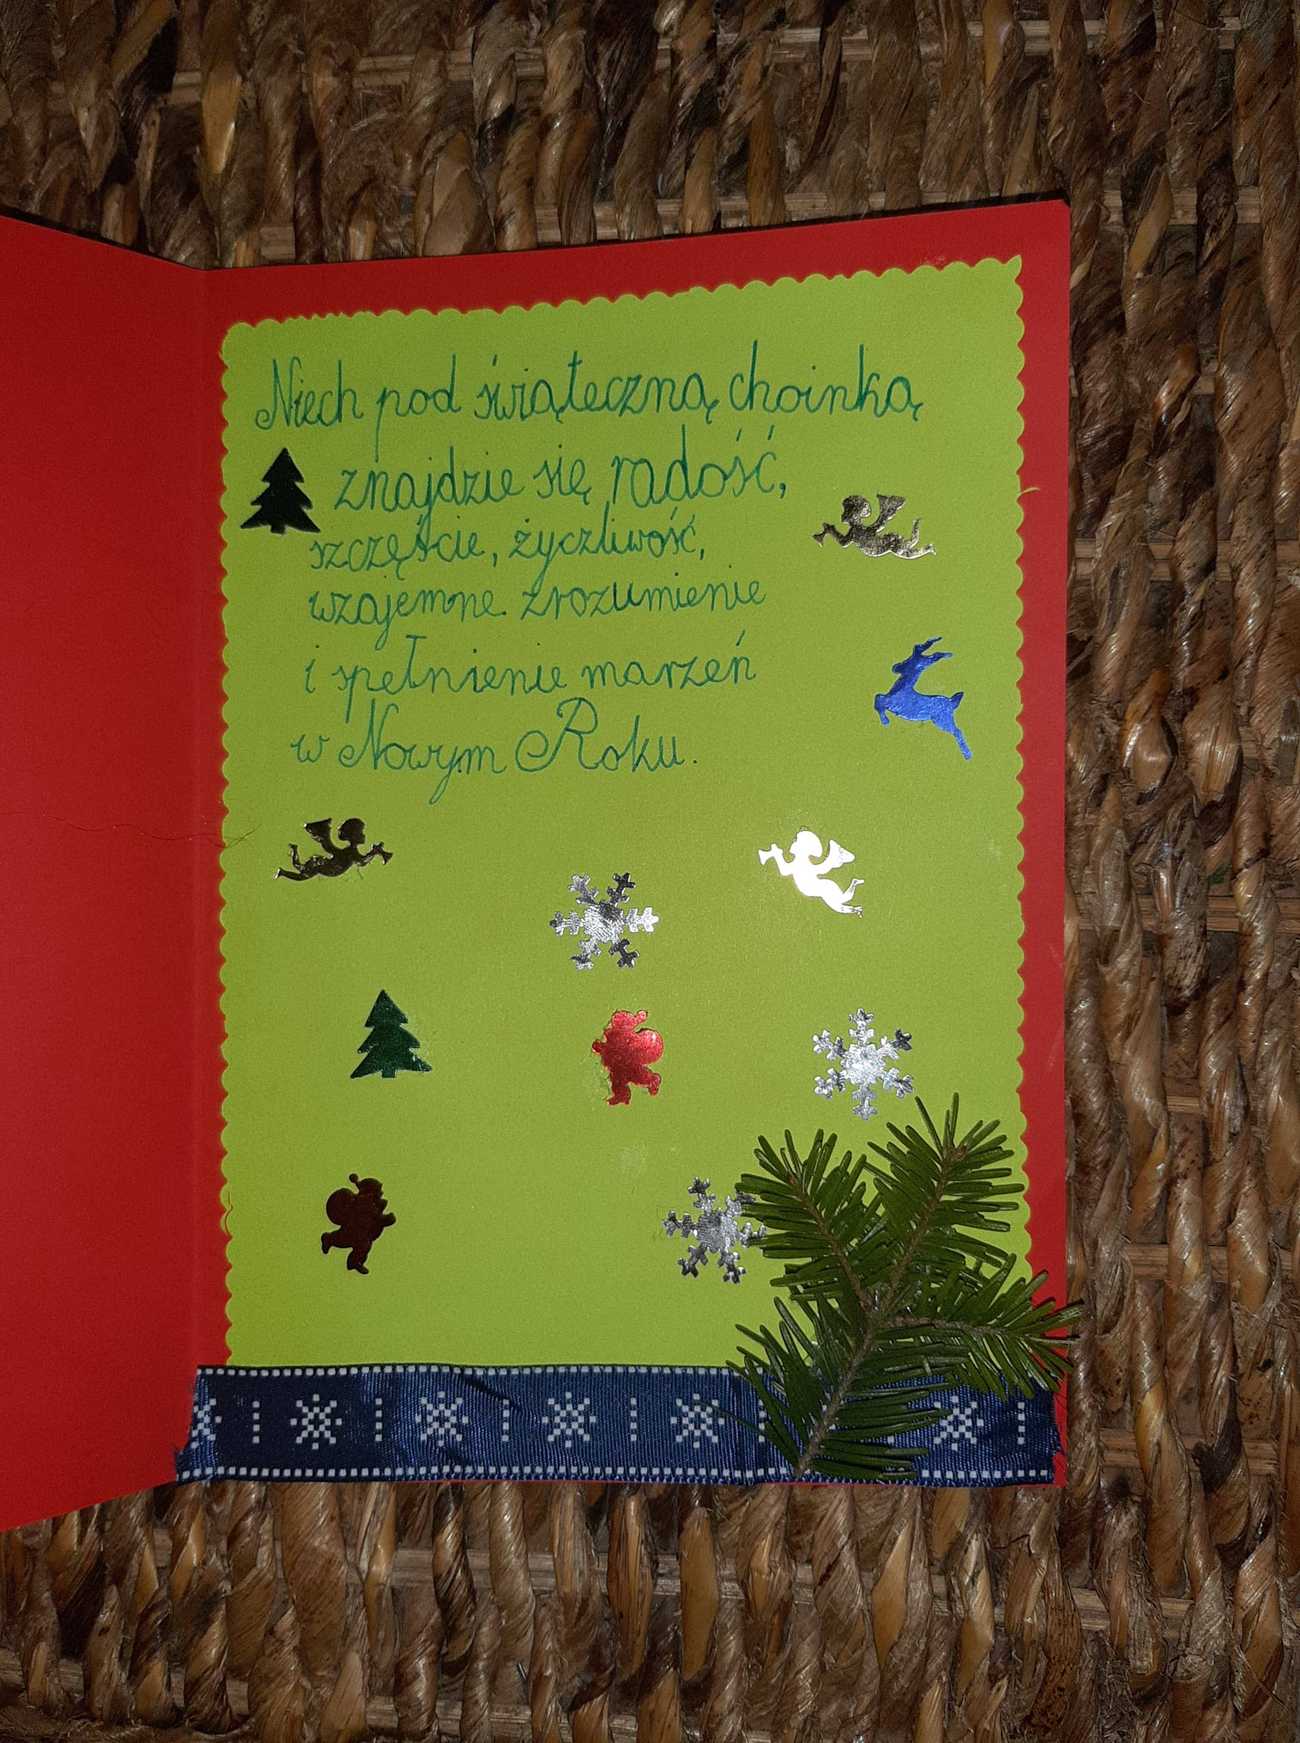 Niech pod świąteczną choinką
znajdzie się radość,
szczęście, życzliwość,
wzajemne zrozumienie
i spełnienie marzeń
w Nowym Roku.